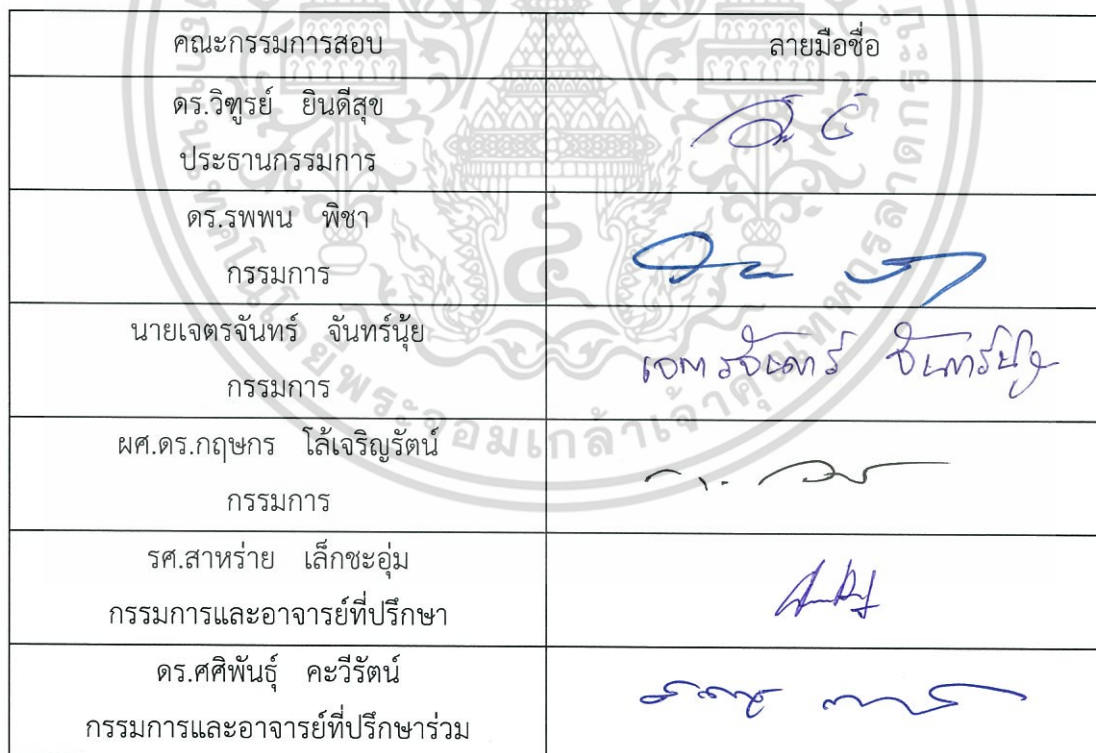 คณะกรรมการสอบ ลายมือชื่อ
ดร.วิฑูรย์ ยินดีสุข
ประธานกรรมการ
ดร.รพพน พิชา
กรรมการ
นายเจตรจันทร์ จันทร์นุ้ย
เจตรจันทร์ จันทร์นุ้ย
กรรมการ
ผศ.ดร.กฤษกร โล้เจริญรัตน์
กรรมการ
รศ.สาหร่าย เล็กชะอุ่ม
กรรมการและอาจารย์ที่ปรึกษา
ดร.ศศิพันธุ์ คะวีรัตน์
กรรมการและอาจารย์ที่ปรึกษาร่วม